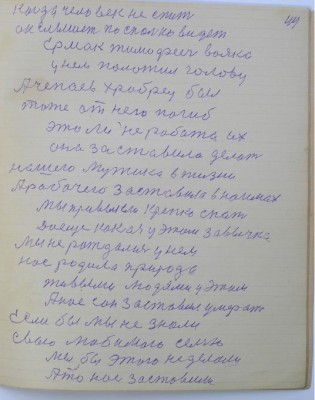 44
Когда человек не спит
он слышет посколко видет
Ермак тимофееч вояка
у нем положил голову
А чепаев храбрец был
тоже от него погиб
это ли не работа их
она заставила делат
нашего мужика в жизни
А рабочего заставила в наймах
мы привыкли крепко спат
у этим завычка
мы не рождалис у нем
нас родила природа
таквыми людями у этим
А нас сон заставил умират
Если бы мы не знали
свою семью
мы бы этого не делали
А то нас заставили